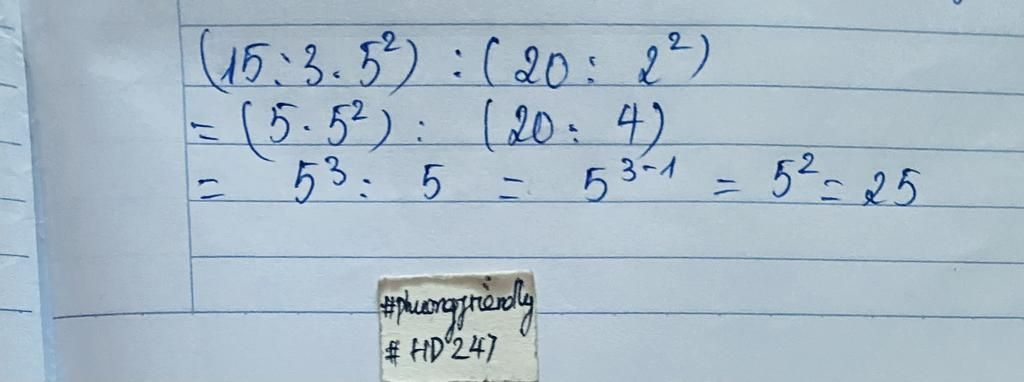 (15 : 3 . 5²) : (20 : 2²)
= (5 . 5²) : (20 : 4)
= 5³ : 5 = 5³⁻¹ = 5² = 25
#phuongfriendly
# HD 247